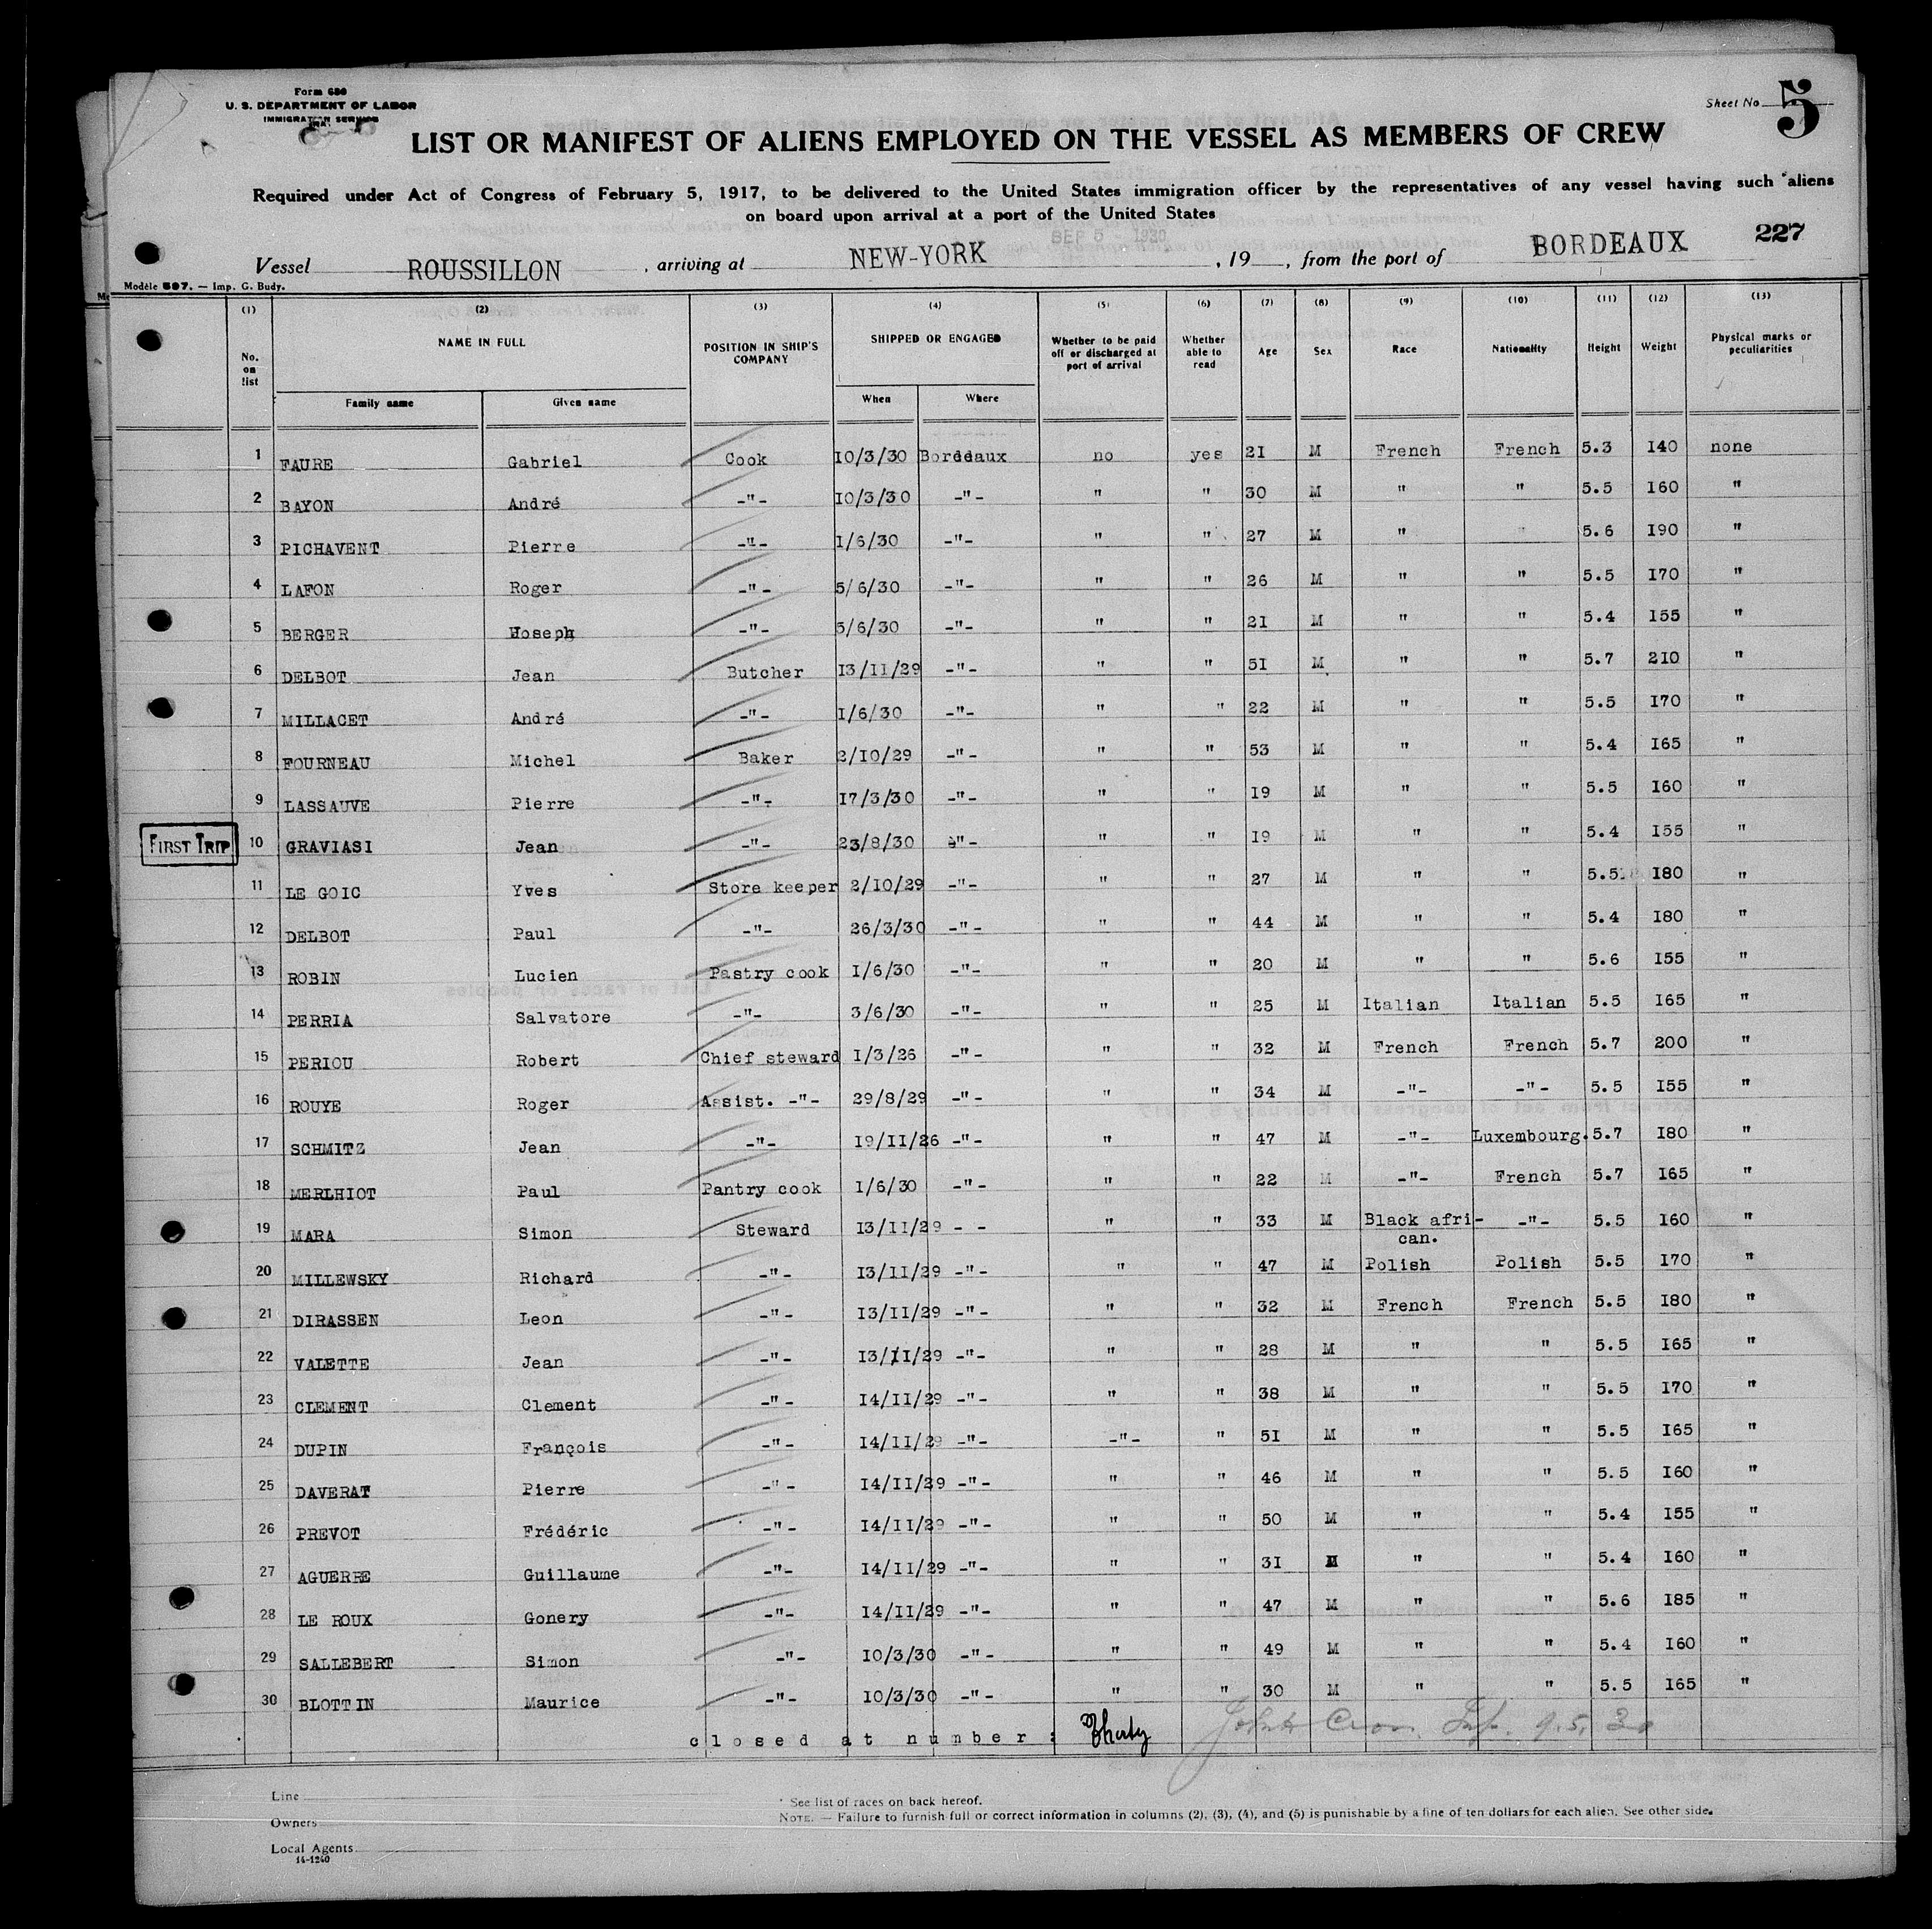 Form 680
U. S. DEPARTMENT OF LABOR
IMMIGRATION SERVICE
Sheet No 5
LIST OR MANIFEST OF ALIENS EMPLOYED ON THE VESSEL AS MEMBERS OF CREW
Required under Act of Congress of February 5, 1917, to be delivered to the United States immigration officer by the representatives of any vessel having such aliens
on board upon arrival at a port of the United States
SEP 5 1930
227
Vessel ROUSSILLON, arriving at NEW-YORK, 19 , from the port of BORDEAUX
Modèle 597. — Imp. G. Budy.
(1) (2) (3) (4) (5) (6) (7) (8) (9) (10) (11) (12) (13)
No. on list NAME IN FULL POSITION IN SHIP'S COMPANY SHIPPED OR ENGAGED Whether to be paid off or discharged at port of arrival Whether able to read Age Sex Race Nationality Height Weight Physical marks or peculiarities
Family name Given name When Where
1 FAURE Gabriel Cook 10/3/30 Bordeaux no yes 21 M French French 5.3 I40 none
2 BAYON André -"- 10/3/30 -"- " " 30 M " " 5.5 I60 "
3 PICHAVENT Pierre -"- I/6/30 -"- " " 27 M " " 5.6 I90 "
4 LAFON Roger -"- 5/6/30 -"- " " 26 M " " 5.5 I70 "
5 BERGER Hoseph -"- 5/6/30 -"- " " 2I M " " 5.4 I55 "
6 DELBOT Jean Butcher I3/II/29 -"- " " 5I M " " 5.7 2I0 "
7 MILLACET André -"- I/6/30 -"- " " 22 M " " 5.5 I70 "
8 FOURNEAU Michel Baker 2/I0/29 -"- " " 53 M " " 5.4 I65 "
9 LASSAUVE Pierre -"- I7/3/30 -"- " " I9 M " " 5.5 I60 "
FIRST TRIP 10 GRAVIASI Jean -"- 23/8/30 -"- " " I9 M " " 5.4 I55 "
11 LE GOIC Yves Store keeper 2/I0/29 -"- " " 27 M " " 5.5 I80 "
12 DELBOT Paul -"- 26/3/30 -"- " " 44 M " " 5.4 I80 "
13 ROBIN Lucien Pastry cook I/6/30 -"- " " 20 M " " 5.6 I55 "
14 PERRIA Salvatore -"- 3/6/30 -"- " " 25 M Italian Italian 5.5 I65 "
15 PERIOU Robert Chief steward I/3/26 -"- " " 32 M French French 5.7 200 "
16 ROUYE Roger Assist. -"- 29/8/29 -"- " " 34 M -"- -"- 5.5 I55 "
17 SCHMITZ Jean -"- I9/II/26 -"- " " 47 M -"- Luxembourg. 5.7 I80 "
18 MERLHIOT Paul Pantry cook I/6/30 -"- " " 22 M -"- French 5.7 I65 "
19 MARA Simon Steward I3/II/29 - - " " 33 M Black afri- -"- 5.5 I60 "
can.
20 MILLEWSKY Richard -"- I3/II/29 -"- " " 47 M Polish Polish 5.5 I70 "
21 DIRASSEN Leon -"- I3/II/29 -"- " " 32 M French French 5.5 I80 "
22 VALETTE Jean -"- I3/II/29 -"- " " 28 M " " 5.5 I65 "
23 CLEMENT Clement -"- I4/II/29 -"- " " 38 M " " 5.5 I70 "
24 DUPIN François -"- I4/II/29 -"- -"- " 5I M " " 5.5 I65 "
25 DAVERAT Pierre -"- I4/II/29 -"- " " 46 M " " 5.5 I60 "
26 PREVOT Frédéric -"- I4/II/29 -"- " " 50 M " " 5.4 I55 "
27 AGUERRE Guillaume -"- I4/II/29 -"- " " 3I M " " 5.4 I60 "
28 LE ROUX Gonery -"- I4/II/29 -"- " " 47 M " " 5.6 I85 "
29 SALLEBERT Simon -"- I0/3/30 -"- " " 49 M " " 5.4 I60 "
30 BLOTTIN Maurice -"- I0/3/30 -"- " " 30 M " " 5.5 I65 "
closed at number : 9.5.30
Line
Owners
Local Agents
14-1240
* See list of races on back hereof.
NOTE. — Failure to furnish full or correct information in columns (2), (3), (4), and (5) is punishable by a fine of ten dollars for each alien. See other side.